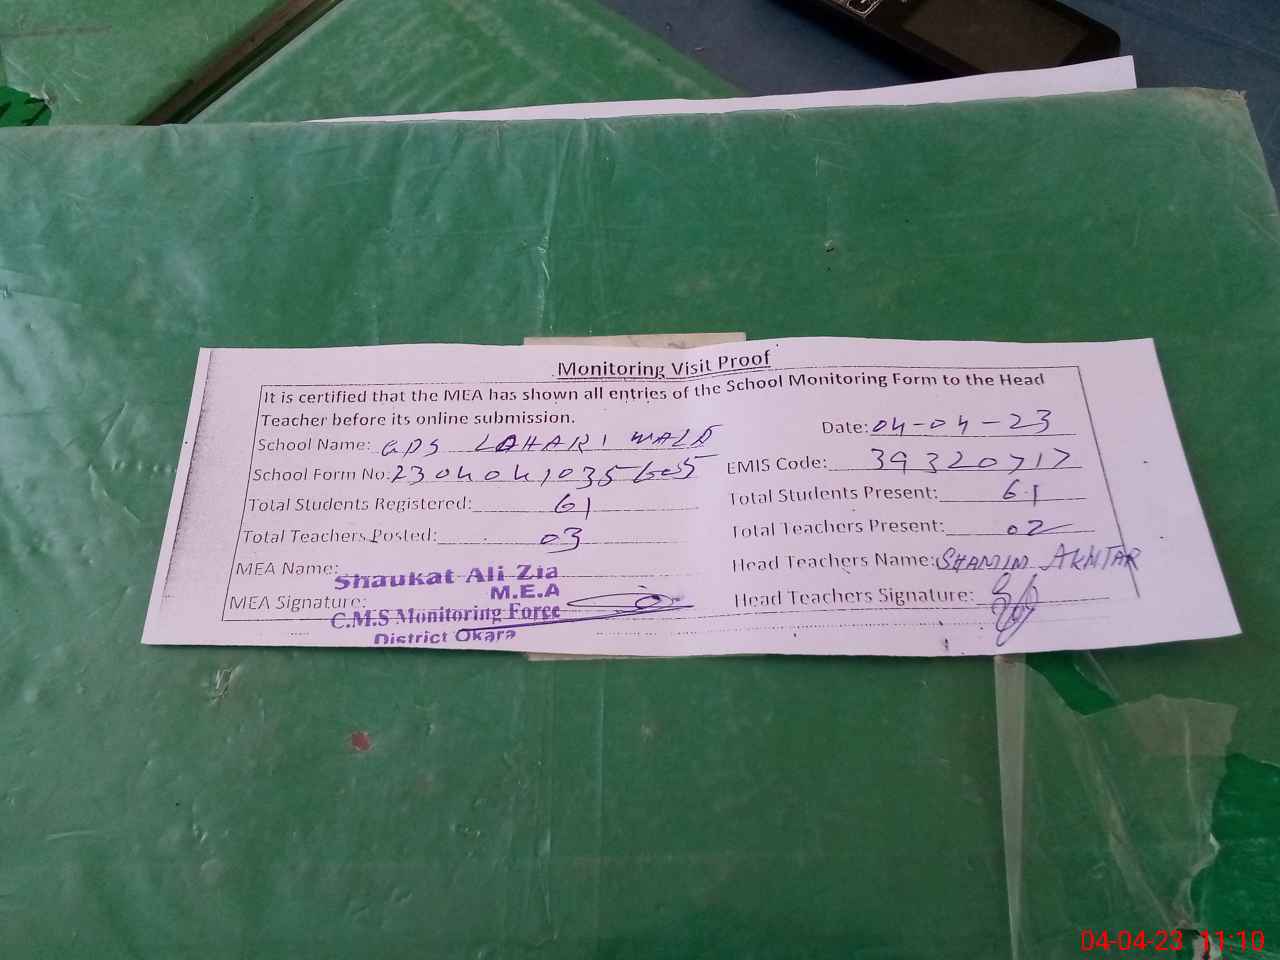 Monitoring Visit Proof
It is certified that the MEA has shown all entries of the School Monitoring Form to the Head
Teacher before its online submission.
Date: 04-04-23
School Name: GPS LAHARI WALA
School Form No: EMIS Code: 39320717
Total Students Registered: 61 Total Students Present: 61
Total Teachers Posted: 03 Total Teachers Present: 02
MEA Name: Shaukat Ali Zia Head Teachers Name: SHAMIM AKHTAR
M.E.A
MEA Signature: Head Teachers Signature:
C.M.S Monitoring Force
District Okara
04-04-23 11:10